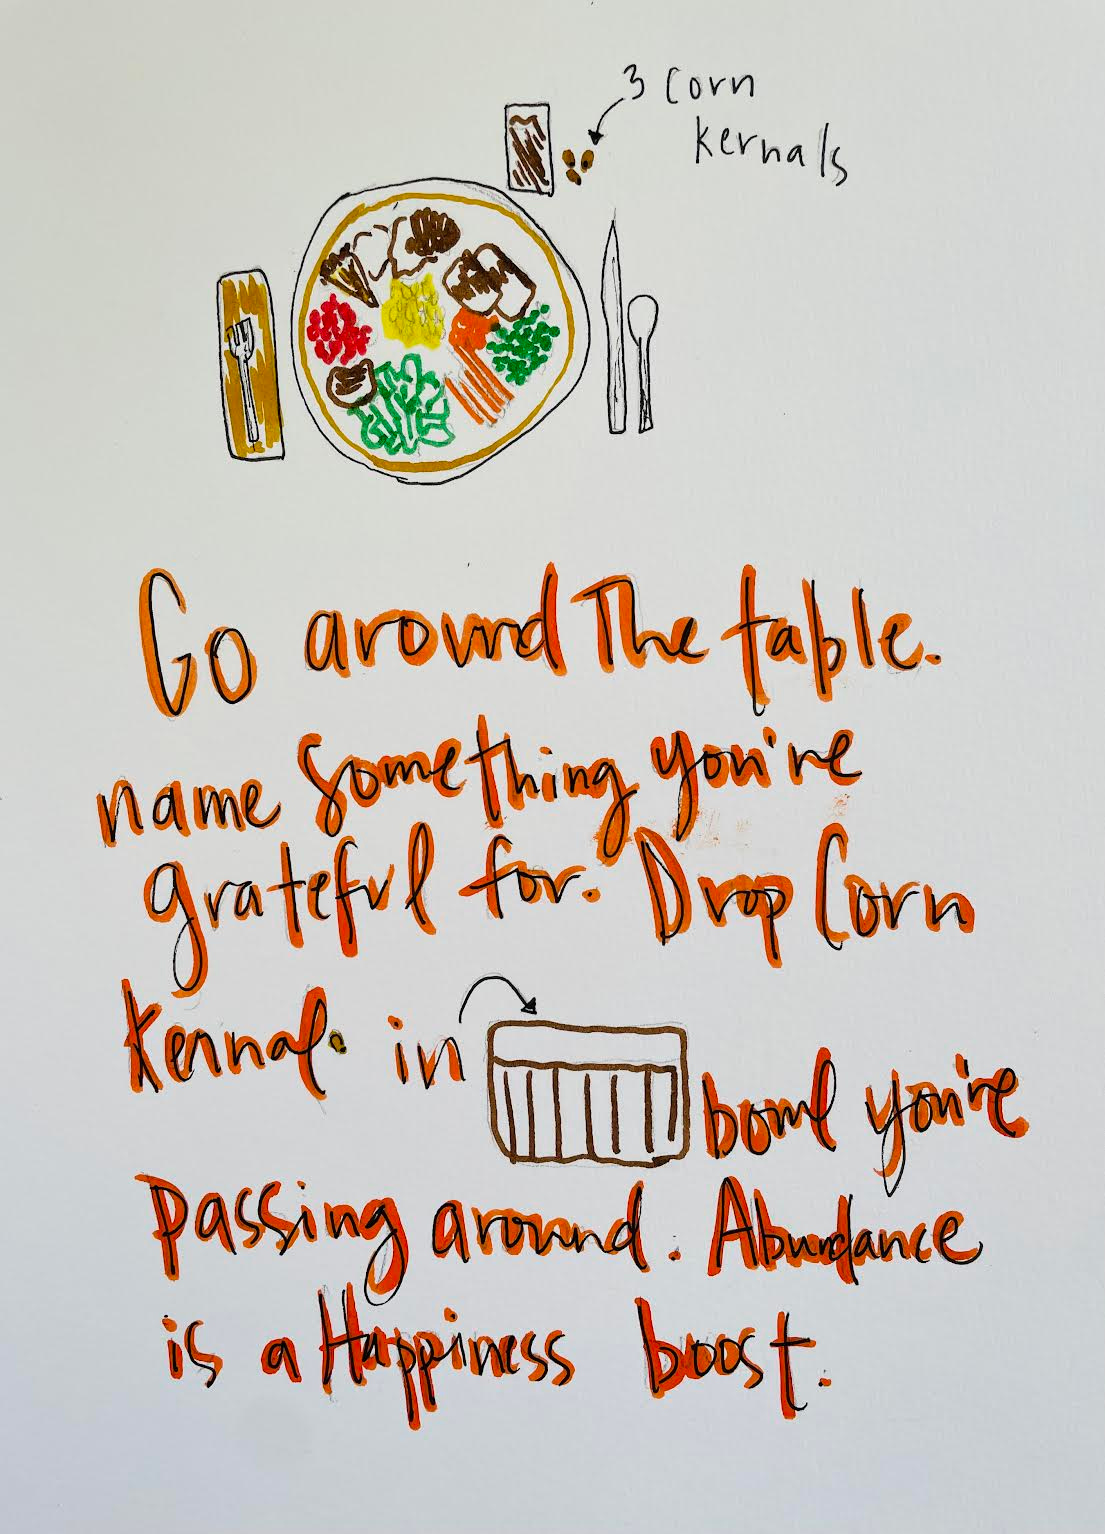 3 Corn
kernals
Go around The table.
name something you're
grateful for. Drop Corn
kernal in
bowl you're
passing around. Abundance
is a Happiness boost.